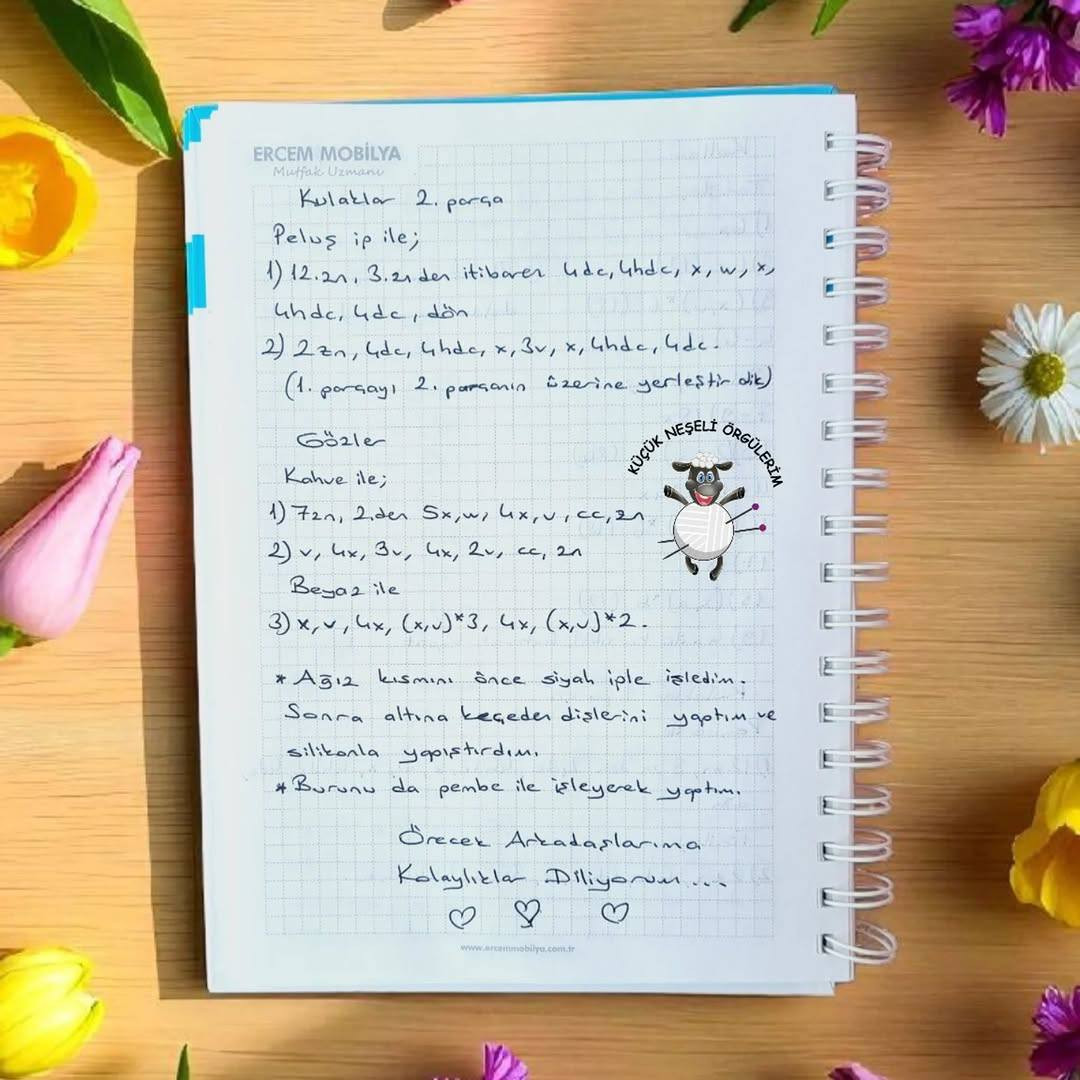 ERCEM MOBİLYA
Mutfak Uzmanı
Kulaklar 2. parça
Peluş ip ile;
1) 12.zn, 3.zn den itibaren 4dc, 4hdc, x, w, x,
4hdc, 4dc, dön
2) 2zn, 4dc, 4hdc, x, 3v, x, 4hdc, 4dc.
(1. parçayı 2. parçanın üzerine yerleştir dik)
Gözler
Kahve ile;
1) 7zn, 2.den 5x, w, 4x, v, cc, zn
2) v, 4x, 3v, 4x, 2v, cc, zn
Beyaz ile
3) x, v, 4x, (x,v)*3, 4x, (x,v)*2.
* Ağız kısmını önce siyah iple işledim.
Sonra altına keçeden dişlerini yaptım ve
silikonla yapıştırdım.
* Burunu da pembe ile işleyerek yaptım.
Örecek Arkadaşlarıma
Kolaylıklar Diliyorum...
www.ercemmobilya.com.tr
KÜÇÜK NEŞELİ ÖRGÜLERİM